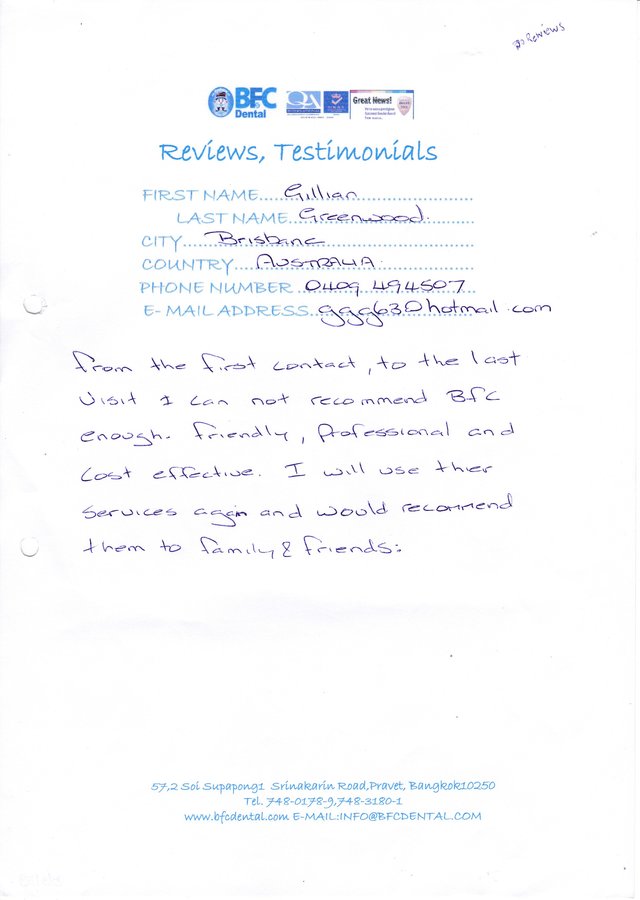 Reviews
BFC
Dental
QA
Great News!
Reviews, Testimonials
FIRST NAME....Gillian
LAST NAME..Greenwood.
CITY....Brisbane
COUNTRY....AUSTRALIA.
PHONE NUMBER..0409 494507
E-MAIL ADDRESS..ggg63@hotmail.com
From the first contact, to the last
Visit I can not recommend Bfc
enough. Friendly, Professional and
Cost effective. I will use thier
Services again and would recommend
them to family & friends:
57,2 Soi Supapong1 Srinakarin Road,Pravet, Bangkok10250
Tel. 748-0178-9,748-3180-1
www.bfcdental.com E-MAIL:INFO@BFCDENTAL.COM